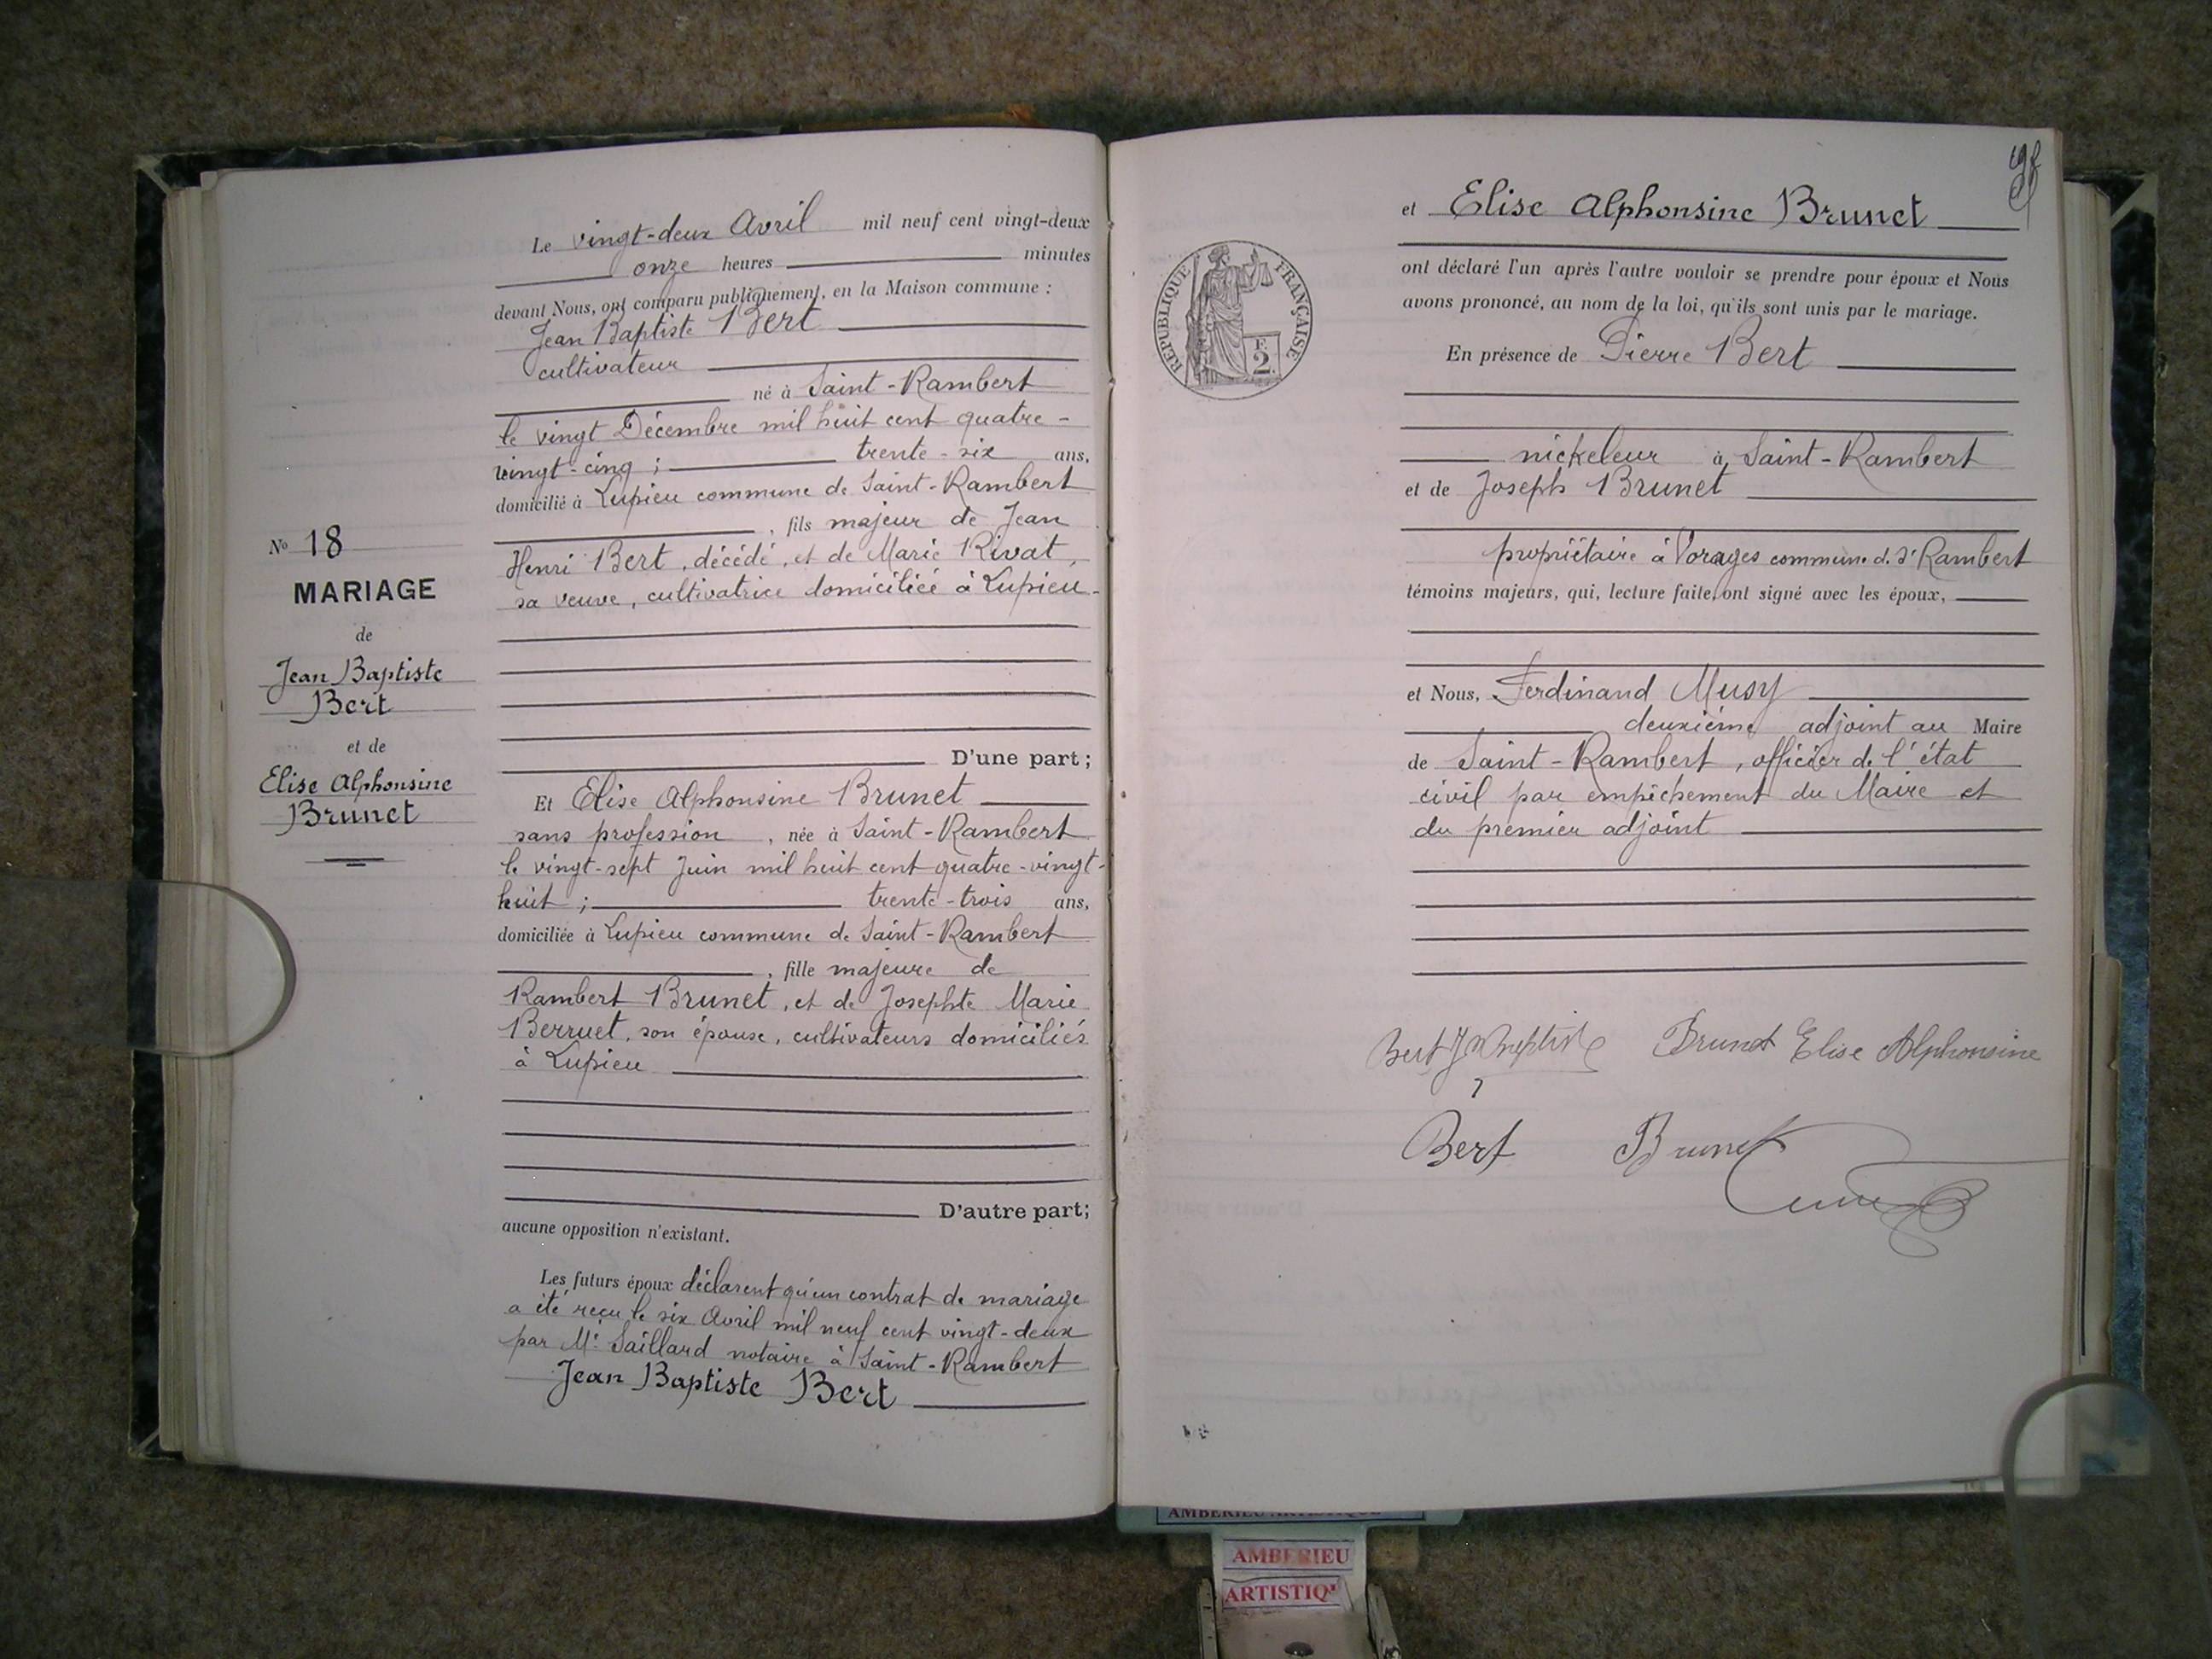 Le vingt-deux Avril mil neuf cent vingt-deux
onze heures minutes
devant Nous, ont comparu publiquement, en la Maison commune :
Jean Baptiste Bert
cultivateur
né à Saint-Rambert
le vingt Décembre mil huit cent quatre-
vingt-cinq ; trente-six ans,
domicilié à Lupieu commune de Saint-Rambert
, fils majeur de Jean
Henri Bert, décédé, et de Marie Rivat,
sa veuve, cultivatrice domiciliée à Lupieu
D'une part;
Et Elise Alphonsine Brunet
sans profession, née à Saint-Rambert
le vingt-sept Juin mil huit cent quatre-vingt-
huit ; trente-trois ans,
domiciliée à Lupieu commune de Saint-Rambert
, fille majeure de
Rambert Brunet, et de Josephte Marie
Berruet, son épouse, cultivateurs domiciliés
à Lupieu
D'autre part;
aucune opposition n'existant.
Les futurs époux déclarent qu'un contrat de mariage
a été reçu le six Avril mil neuf cent vingt-deux
par Me Saillard notaire à Saint-Rambert
Jean Baptiste Bert
No 18
MARIAGE
de
Jean Baptiste
Bert
et de
Elise Alphonsine
Brunet
et Elise Alphonsine Brunet
ont déclaré l'un après l'autre vouloir se prendre pour époux et Nous
avons prononcé, au nom de la loi, qu'ils sont unis par le mariage.
En présence de Pierre Bert
nickeleur à Saint-Rambert
et de Joseph Brunet
propriétaire à Vorages commune d. St Rambert
témoins majeurs, qui, lecture faite, ont signé avec les époux,
et Nous, Ferdinand Musy
deuxième adjoint au Maire
de Saint-Rambert, officier de l'état
civil par empêchement du Maire et
du premier adjoint
Bert J Baptiste Brunet Elise Alphonsine
Bert Brunet
RÉPUBLIQUE FRANÇAISE
F.
2
AMBERIEU ARTISTIQUE
AMBERIEU
ARTISTIQ